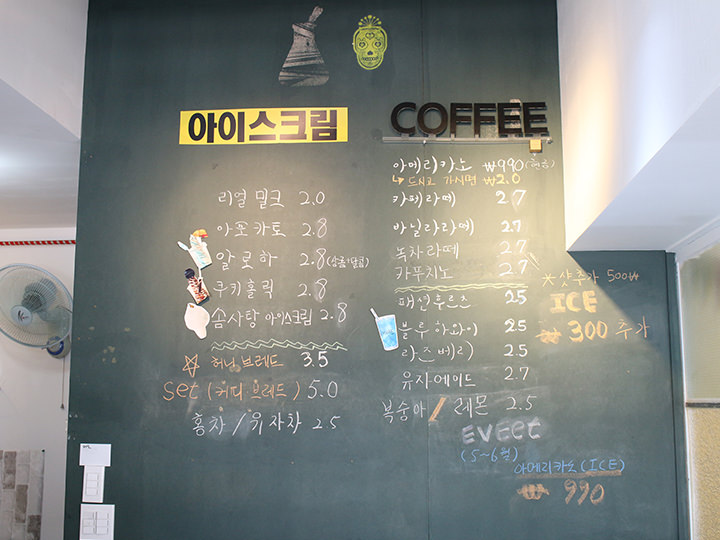 아이스크림
리얼 밀크 2.0
아포카토 2.8
알로하 2.8 (상콤+달콤)
쿠키홀릭 2.8
솜사탕 아이스크림 2.8
허니브레드 3.5
set (커피+브레드) 5.0
홍차 / 유자차 2.5
COFFEE
아메리카노 ₩990 (현금)
↳ 드시고 가시면 ₩2.0
카페라떼 2.7
바닐라라떼 2.7
녹차라떼 2.7
카푸치노 2.7
패션후르츠 2.5
블루하와이 2.5
라즈베리 2.5
유자에이드 2.7
복숭아 / 레몬 2.5
샷추가 500₩
ICE
₩ 300 추가
EVEet
(5~6월)
아메리카노 (ICE)
₩ 990